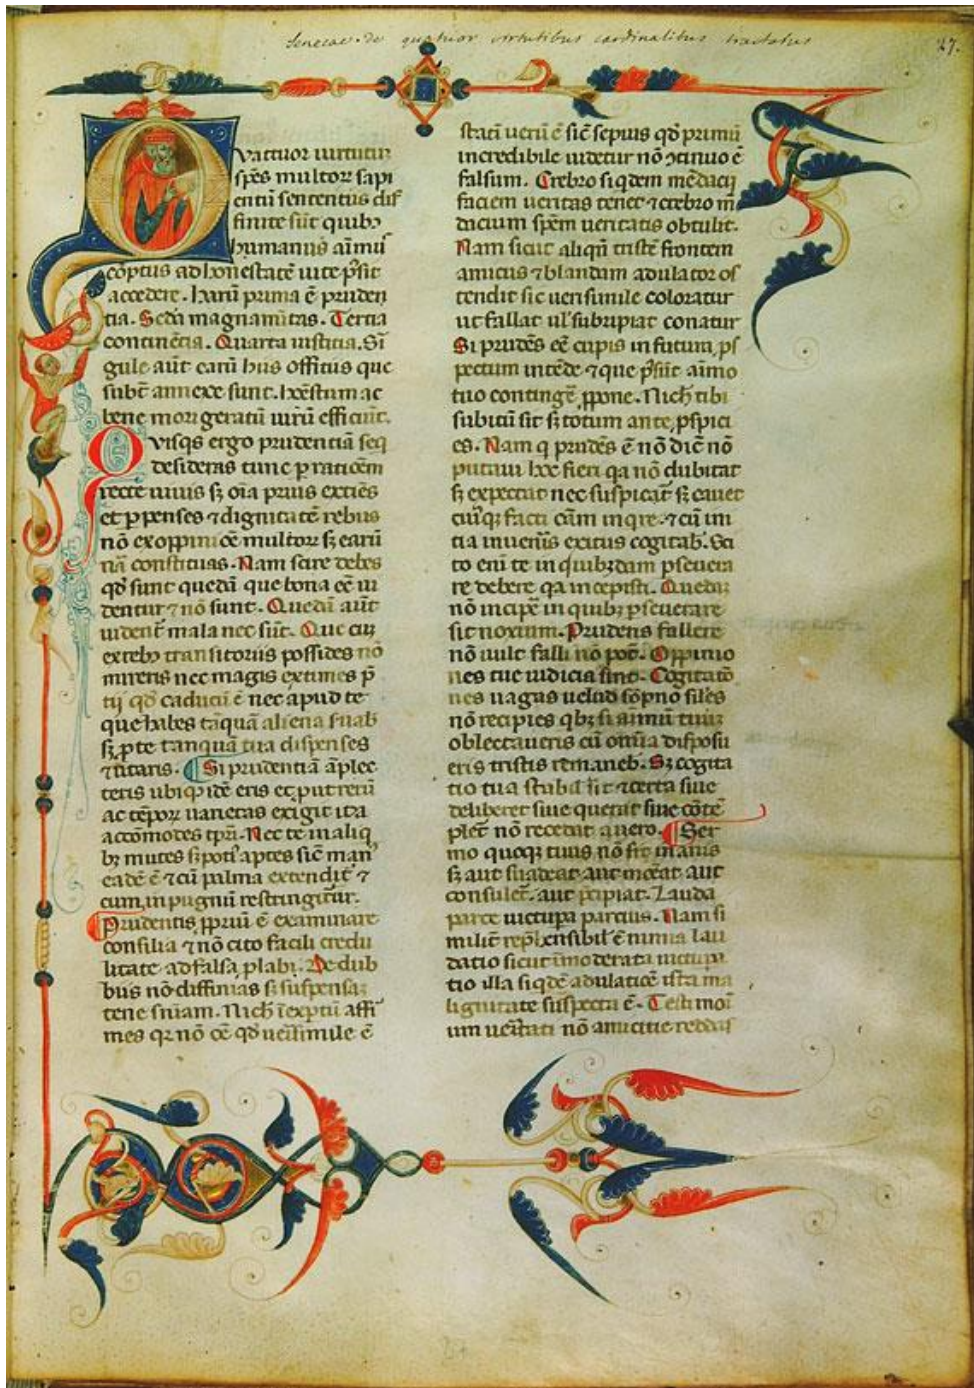 Senecae de quatuor virtutibus cardinalibus tractatus
27.
Quattuor uirtutum
spẽs multorꝝ sapi
entũ sententiis dif
finite sũt quibꝫ
humanus aĩmus
cõptus ad honestatẽ uite p̃sit
accedere. harũ prima ẽ pruden
tia. Sedã magnamitas. Tertia
continẽtia. Quarta iustitia. Sĩ
gule aũt earũ hiis offitiis que
subt̃ annexe sunt. honestum ac
bene morigeratũ uirũ efficiũt.
Quisqs ergo prudentiã seq̃
desideras tunc ꝑ ratiõem
recte uiuis sꝫ oĩa prius extiẽs
et ꝑpenses ⁊ dignitatẽ rebus
nõ ex oppiniõe multorꝝ sꝫ earũ
nã constituas. Nam scire debes
qđ sunt quedã que bona eẽ ui
dentur ⁊ nõ sunt. Quedã aũt
uident̃ mala nec sũt. Que cũqꝫ
ex rebꝫ transitoriis possides nõ
mireris nec magis extimes p̃
tij qđ caducũ ẽ nec apud te
que habes tãquã aliena suab̃
sꝫ p te tanquã tua dispenses
⁊ utaris. Si prudentiã ãplec
teris ubiqꝫ idẽ eris et put rerũ
ac tẽporꝝ uarietas exigit ita
accõmodes tp̃ri. Nec te in aliq̃
bꝫ mutes sꝫ poti aptes sic̃ man
eadẽ ẽ ⁊ cũ palma extendit̃ ⁊
cum in pugnũ restringitur.
Prudentis ꝓpriũ ẽ examinare
consilia ⁊ nõ cito facili credu
litate ad falsa ꝓlabi. De dub
bus nõ diffinias sꝫ suspensaꝫ
tene sniam. Nich̃ ĩexptũ affi
mes qꝛ nõ oẽ qđ uerisimile ẽ
statĩ uerũ ẽ sic̃ sepius qđ primũ
incredibile uidetur nõ ↄtinuo ẽ
falsum. Crebro siqdem mẽdacij
faciem ueritas tenet ⁊ crebro mẽ
dacium spẽm ueritatis obtulit.
Nam sicut aliqñ tristẽ frontem
amicus ⁊ blandam adulator os
tendit sic uerisimile coloratur
ut fallat ul̃ subripiat conatur
Si prudẽs eẽ cupis in futura ꝓs
pectum intẽde ⁊ que p̃sũt aĩmo
tuo contingẽ ꝓpone. Nich̃ tibi
subitũ sit sꝫ totum ante ꝓspici
es. Nam q prudẽs ẽ nõ dic̃ nõ
putaui hoc fieri qa nõ dubitat
sꝫ expectat nec suspicat̃ sꝫ cauet
cuiꝰqꝫ facti cãm inqre. ⁊ cũ ini
tia inueñis exitus cogitab̃. Sci
to eni te in quibꝫdam ꝑseuera
re debere qa incepisti. Quedaꝫ
nõ incipe in quibꝫ ꝑseuerare
sit noxium. Prudens fallere
nõ uult falli nõ pot̃. Oppinio
nes tue iudicia sint. Cogitatõ
nes uagas uelud sõpno siles
nõ recipies qbꝫ si animũ tuuꝫ
oblectaueris cũ omĩa disposu
eris tristis remaneb̃. Sꝫ cogita
tio tua stabil̃ sit ⁊ certa siue
deliberet siue querat siue cõtẽ
plet̃ nõ recedat a uero. Ser
mo quoqꝫ tuus nõ sit inanis
sꝫ aut suadeat aut moneat aut
consulet̃ aut p̃cipiat. Lauda
parce uictupa parcius. Nam si
milit̃ rep̃hensibil̃ ẽ nimia lau
datio sicut ĩmoderata uictupa
tio illa siqdẽ adulatiõe ista ma
lignitate suspecta ẽ. Testimoĩ
um ueritati nõ amicitie reddas